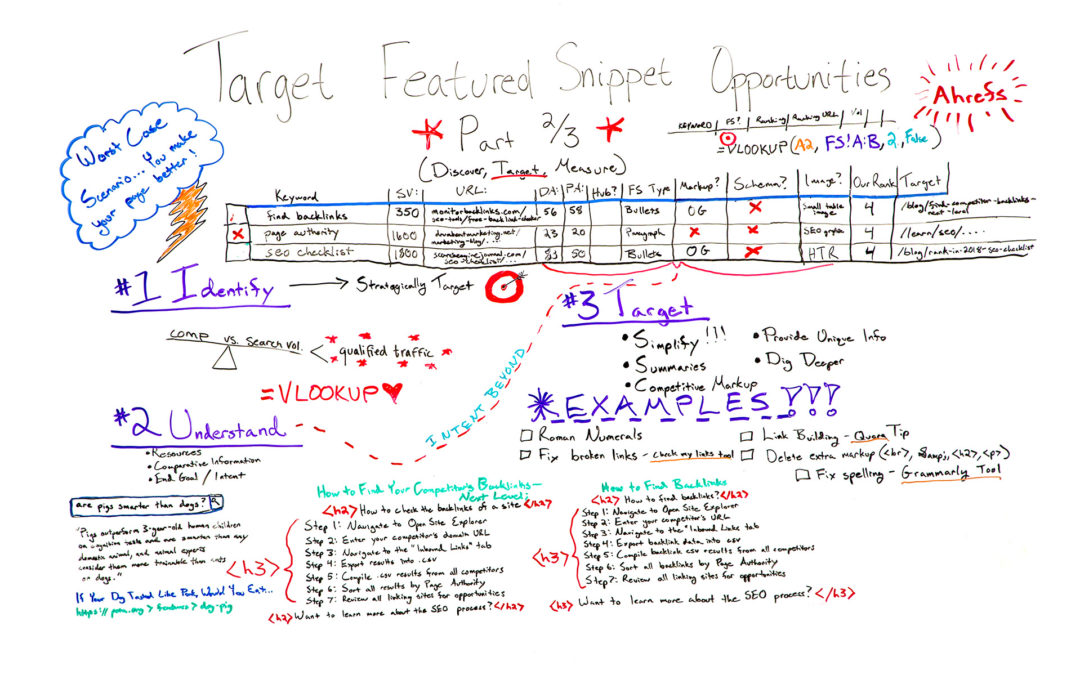 Target Featured Snippet Opportunities
Part 2/3
(Discover, Target, Measure)
Ahrefs
Worst Case
Scenario... You make
your page better!
KEYWORD | FS? | Ranking | Ranking URL | Vol
=VLOOKUP(A2, FS!A:B, 2, False)
Keyword SV: URL: DA: PA: Hub? FS Type Markup? Schema? Image? Our Rank Target
find backlinks 350 monitorbacklinks.com/ 56 58 Bullets OG X Small table 4 /blog/find-competitor-backlinks-
seo-tools/free-backlink-checker image next-level
X page authority 1600 marketing-blog/...? 23 20 Paragraph X X SEO graph 4 /learn/seo/....
seo checklist 1800 searchenginejournal.com/ 50 Bullets OG X HTR 4 /blog/rank-in-2018-seo-checklist
seo-checklist/...
#1 Identify → Strategically Target
comp vs. search vol. < qualified traffic
=VLOOKUP
INTENT BEYOND
#2 Understand
• Resources
• Comparative Information
• End Goal / Intent
are pigs smarter than dogs?
"Pigs outperform 3-year-old human children
on cognition tests and are smarter than any
domestic animal, and animal experts
consider them more trainable than cats
or dogs."
If Your Dog Tasted Like Pork, Would You Eat...
https:// peta.org > features > dog-pig
#3 Target
• Simplify!!!
• Summaries
• Competitive Markup
• Provide Unique Info
• Dig Deeper
*EXAMPLES!!!
Roman Numerals
Fix broken links - check my links tool
Link Building - Quora Tip
Delete extra markup (<br>, &amp;, <h2>, <p>)
Fix spelling - Grammarly Tool
How to Find Your Competitor's Backlinks-
Next Level:
<h2> How to check the backlinks of a site </h2>
<h3>
Step 1: Navigate to Open Site Explorer
Step 2: Enter your competitor's domain URL
Step 3: Navigate to the "Inbound Links" tab
Step 4: Export results into .csv
Step 5: Compile .csv results from all competitors
Step 6: Sort all results by Page Authority
Step 7: Review all linking sites for opportunities
<h2> Want to learn more about the SEO process? </h2>
How to Find Backlinks
<h2> How to find backlinks? </h2>
<h3>
Step 1: Navigate to Open Site Explorer
Step 2: Enter your competitor's URL
Step 3: Navigate to the "Inbound Links" tab
Step 4: Export backlink data into csv
Step 5: Compile backlink csv results from all competitors
Step 6: Sort all backlinks by Page Authority
Step 7: Review all linking sites for opportunities
<h3> Want to learn more about the SEO process? </h3>